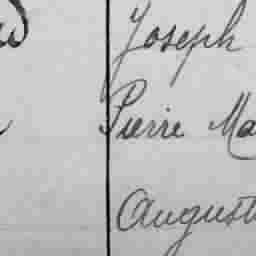 Joseph
Pierre Ma
August